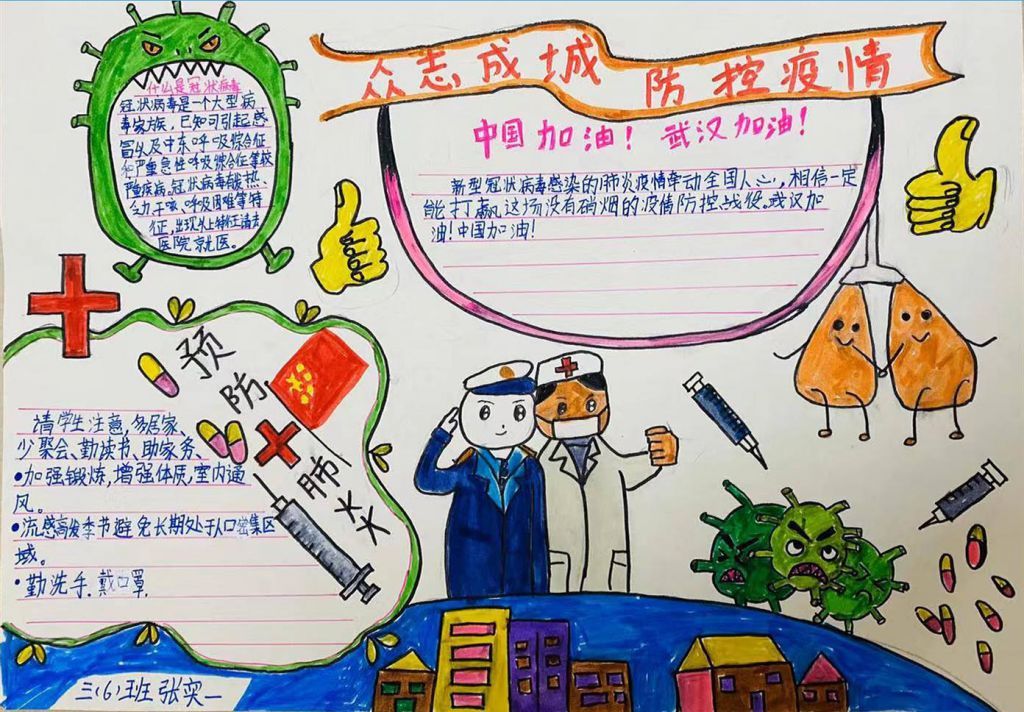 众志成城 防控疫情
中国加油! 武汉加油!
新型冠状病毒感染的肺炎疫情牵动全国人心,相信一定
能打赢这场没有硝烟的疫情防控战役。武汉加
油!中国加油!
什么是冠状病毒
冠状病毒是一个大型病
毒家族,已知可引起感
冒以及中东呼吸综合征
和严重急性呼吸综合征等较
严重疾病。冠状病毒
呼吸困难等特
征,出现以上特征请去
医院就医。
预防
肺炎
请学生注意,多居家、
少聚会、勤读书、助家务、
•加强锻炼,增强体质,室内通
风。
•流感高发季节避免长期处于人口密集区
域。
•勤洗手.戴口罩.
三(6)班 张奕一